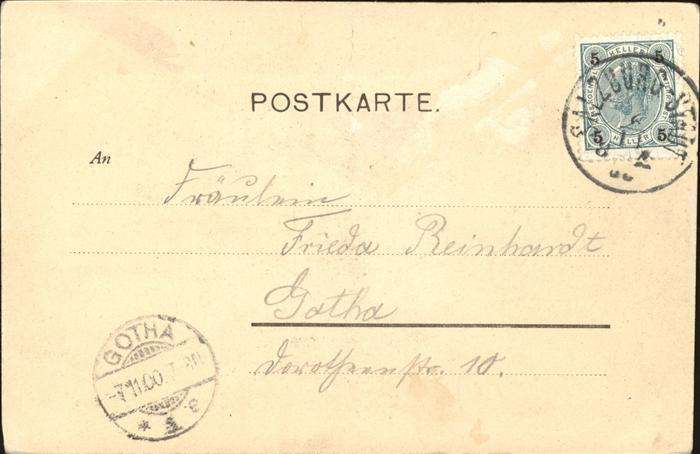 5 HELLER 5
5 HELLER 5
SALZBURG STADT
POSTKARTE.
An
Fräulein
Frieda Reinhardt
Gotha
Dorotheenstr. 10.
GOTHA
-7.11.00.
* *